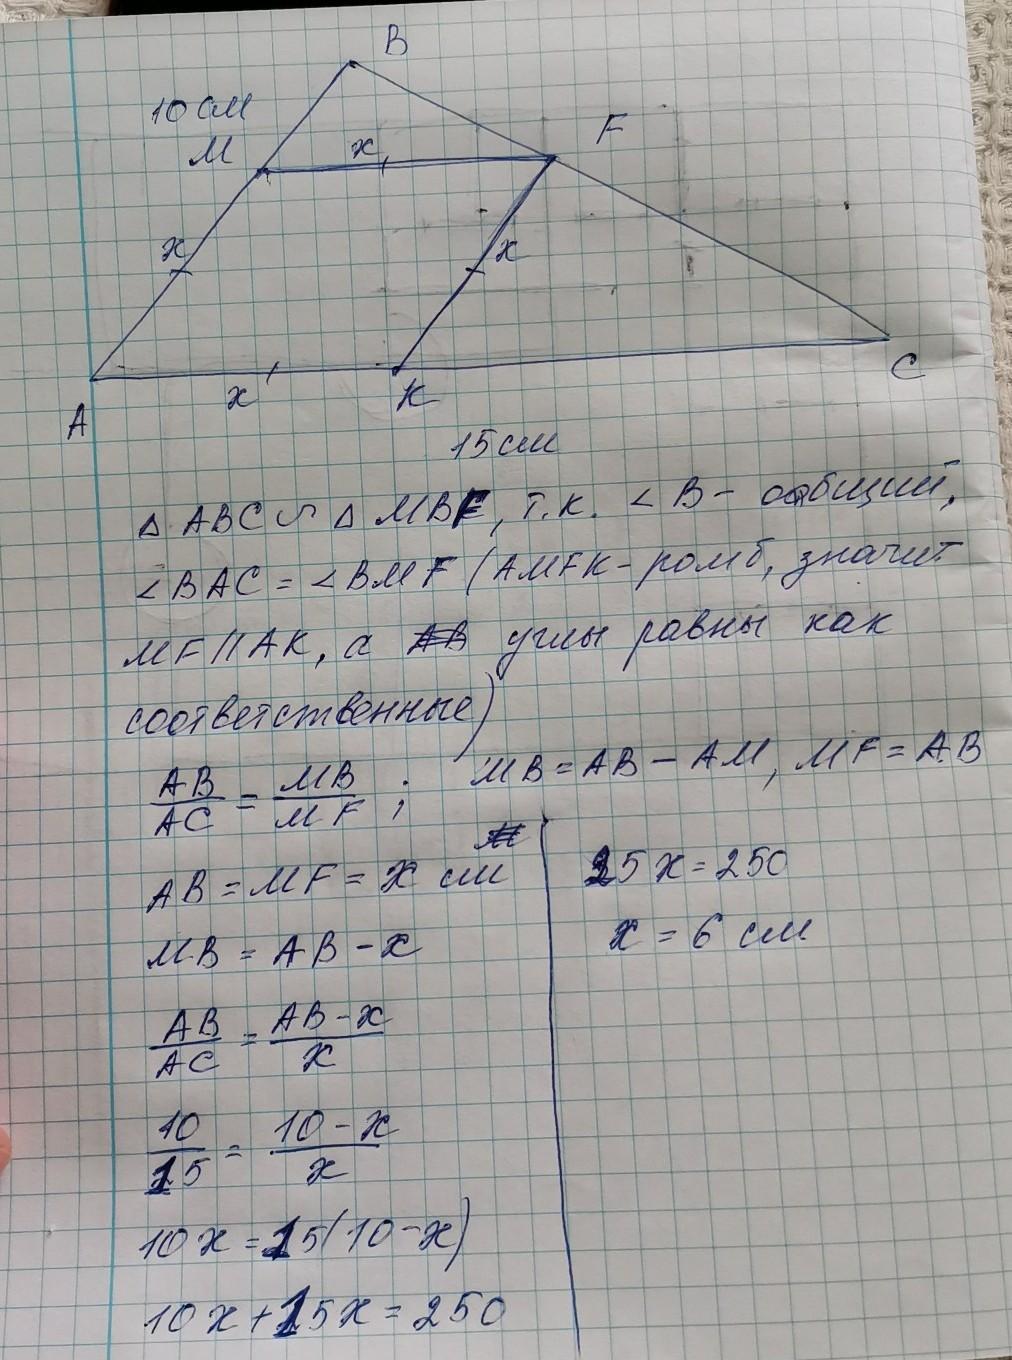 B
10 см
M
x
F
x
x
x
K
C
A
15 см
△ ABC ∽ △ MBF, т.к. ∠B - общий,
∠BAC = ∠BMF (AMFK - ромб, значит
MF || AK, а углы равны как
соответственные)
AB/AC = MB/MF ; MB = AB - AM, MF = AB
AB = MF = x см
MB = AB - x
AB/AC = AB - x/x
10/15 = 10 - x/x
10x = 15(10 - x)
10x + 15x = 250
25x = 250
x = 6 см